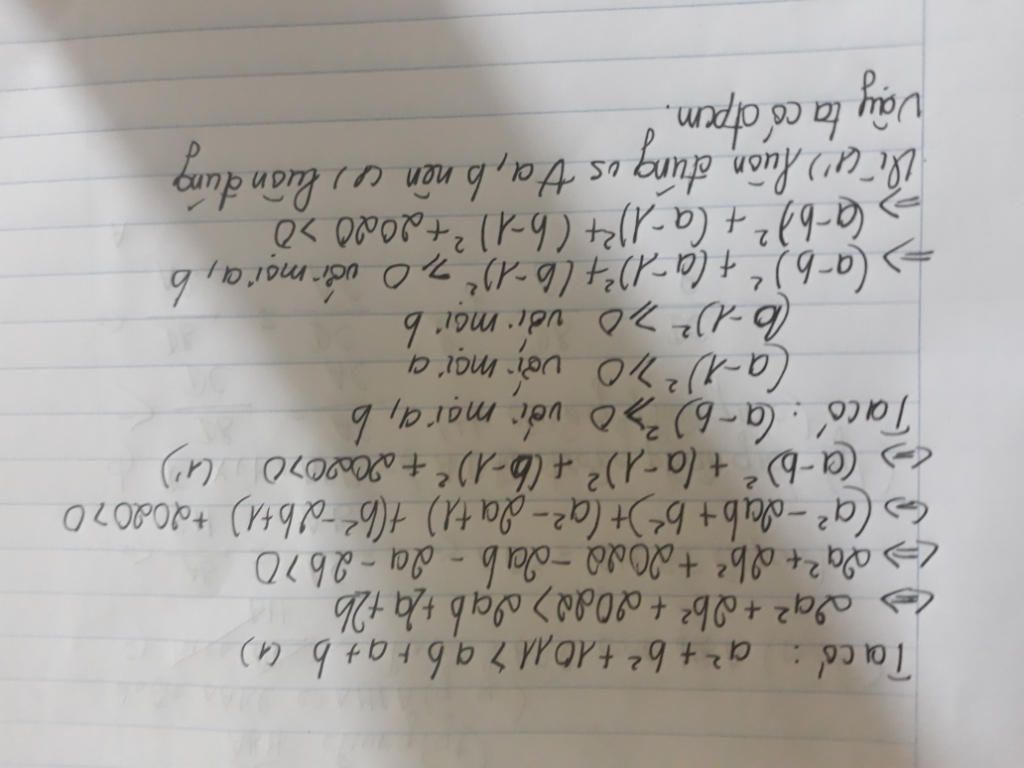 Ta có: a² + b² + 1011 > ab + a + b (1)
<=> 2a² + 2b² + 2022 > 2ab + 2a + 2b
<=> 2a² + 2b² + 2022 - 2ab - 2a - 2b > 0
<=> (a² - 2ab + b²) + (a² - 2a + 1) + (b² - 2b + 1) + 2020 > 0
<=> (a-b)² + (a-1)² + (b-1)² + 2020 > 0 (1')
Ta có: (a-b)² ≥ 0 với mọi a, b
(a-1)² ≥ 0 với mọi a
(b-1)² ≥ 0 với mọi b
=> (a-b)² + (a-1)² + (b-1)² ≥ 0 với mọi a, b
=> (a-b)² + (a-1)² + (b-1)² + 2020 > 0
Vì (1') luôn đúng vs ∀ a, b nên (1) luôn đúng
Vậy ta có đpcm.